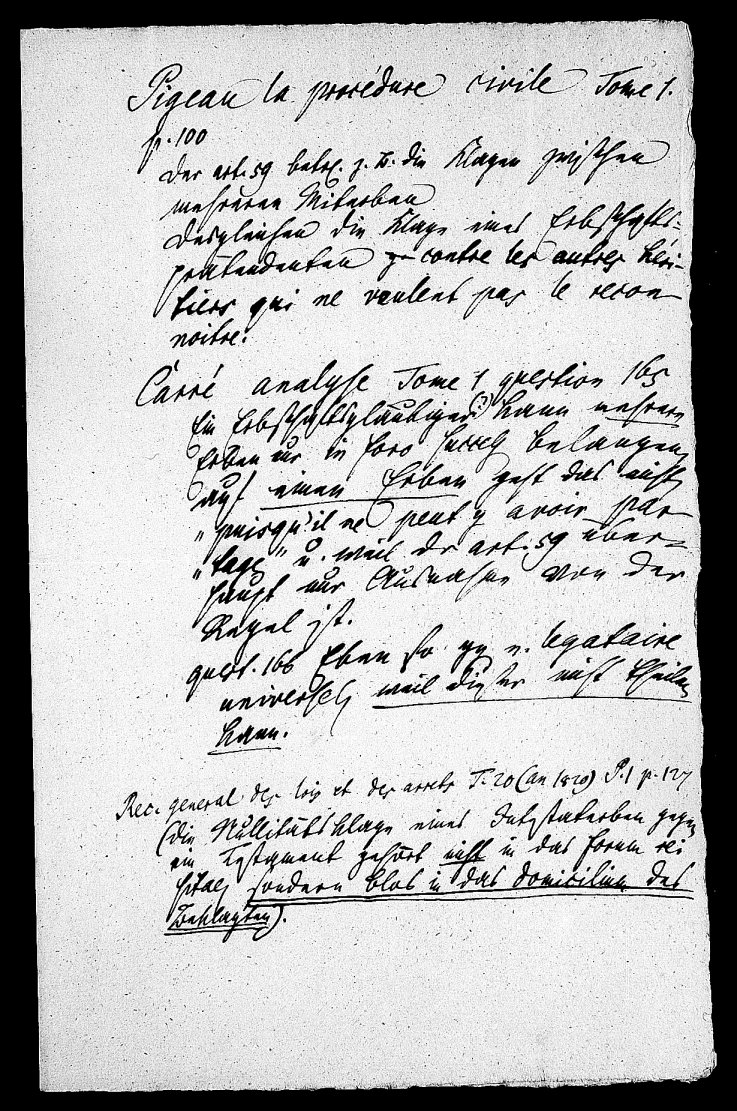 Pigeau la procédure civile Tome 1.
p. 100
Der art. 59 betr. z. B. die Klagen zwischen
mehreren Miterben
Desgleichen die Klage eines Erbschafts-
prätendenten contre les autres héri-
tiers qui ne veulent pas le recon-
noitre.
Carré analyse Tome 1 question 165
Ein Erbschaftsgläubiger kann mehrere
Erben nur in foro belangen,
auf einen Erben geht das nicht
"puisqu'il ne peut y avoir par-
"tage" u. weil der art. 59 über-
haupt nur Ausnahme von der
Regel ist.
quest. 166 Eben so gg. e. legataire
universel, weil dieser nicht theilen
kann.
Rec. general des lois et des arrets T. 20 (an 1820) P. 1 p. 127
(die Nullitätsklage eines Intestaterben gegen
ein Testament gehört nicht in das forum rei
sitae, sondern blos in das domicilium des
Beklagten).